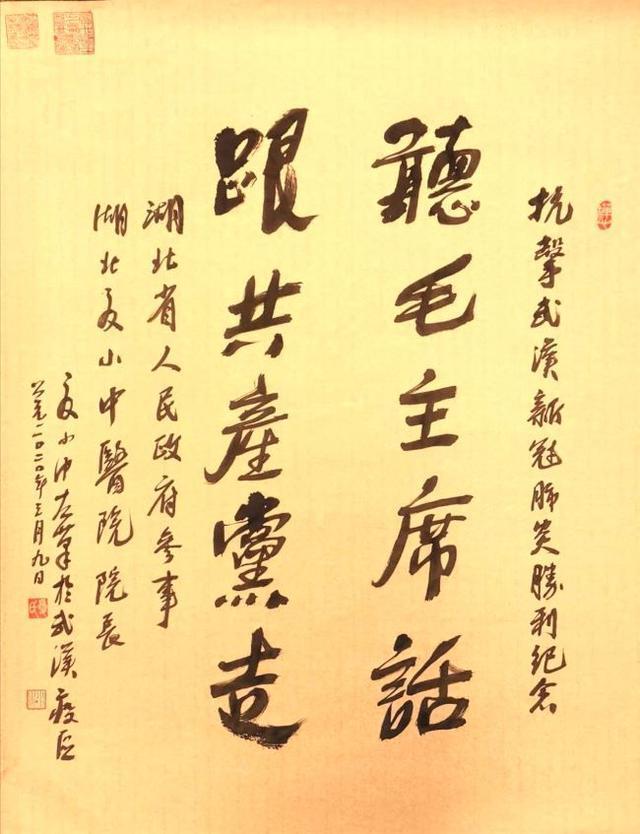 抗擊武漢新冠肺炎勝利纪念
聽毛主席話
跟共產黨走
湖北省人民政府參事
湖北夏小中醫院院長
夏小中左筆於武漢疫区
公元二〇二〇年三月九日